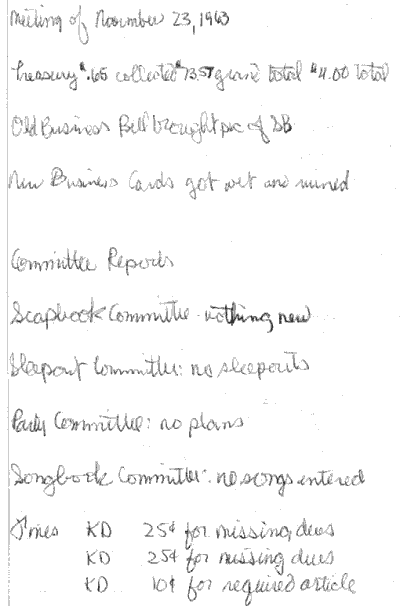 Meeting of November 23, 1963
Treasury $.65 collected $73.57 grand total $4.00 total
Old Business Bell brought pic of DB
New Business Cards got wet and ruined
Committee Reports
Scapbook Committe - nothing new
Sleepout Committee: no sleepouts
Party Committee: no plans
Songbook Committee: no songs entered
Fines KD 25¢ for missing dues
KD 25¢ for missing dues
KD 10¢ for required article